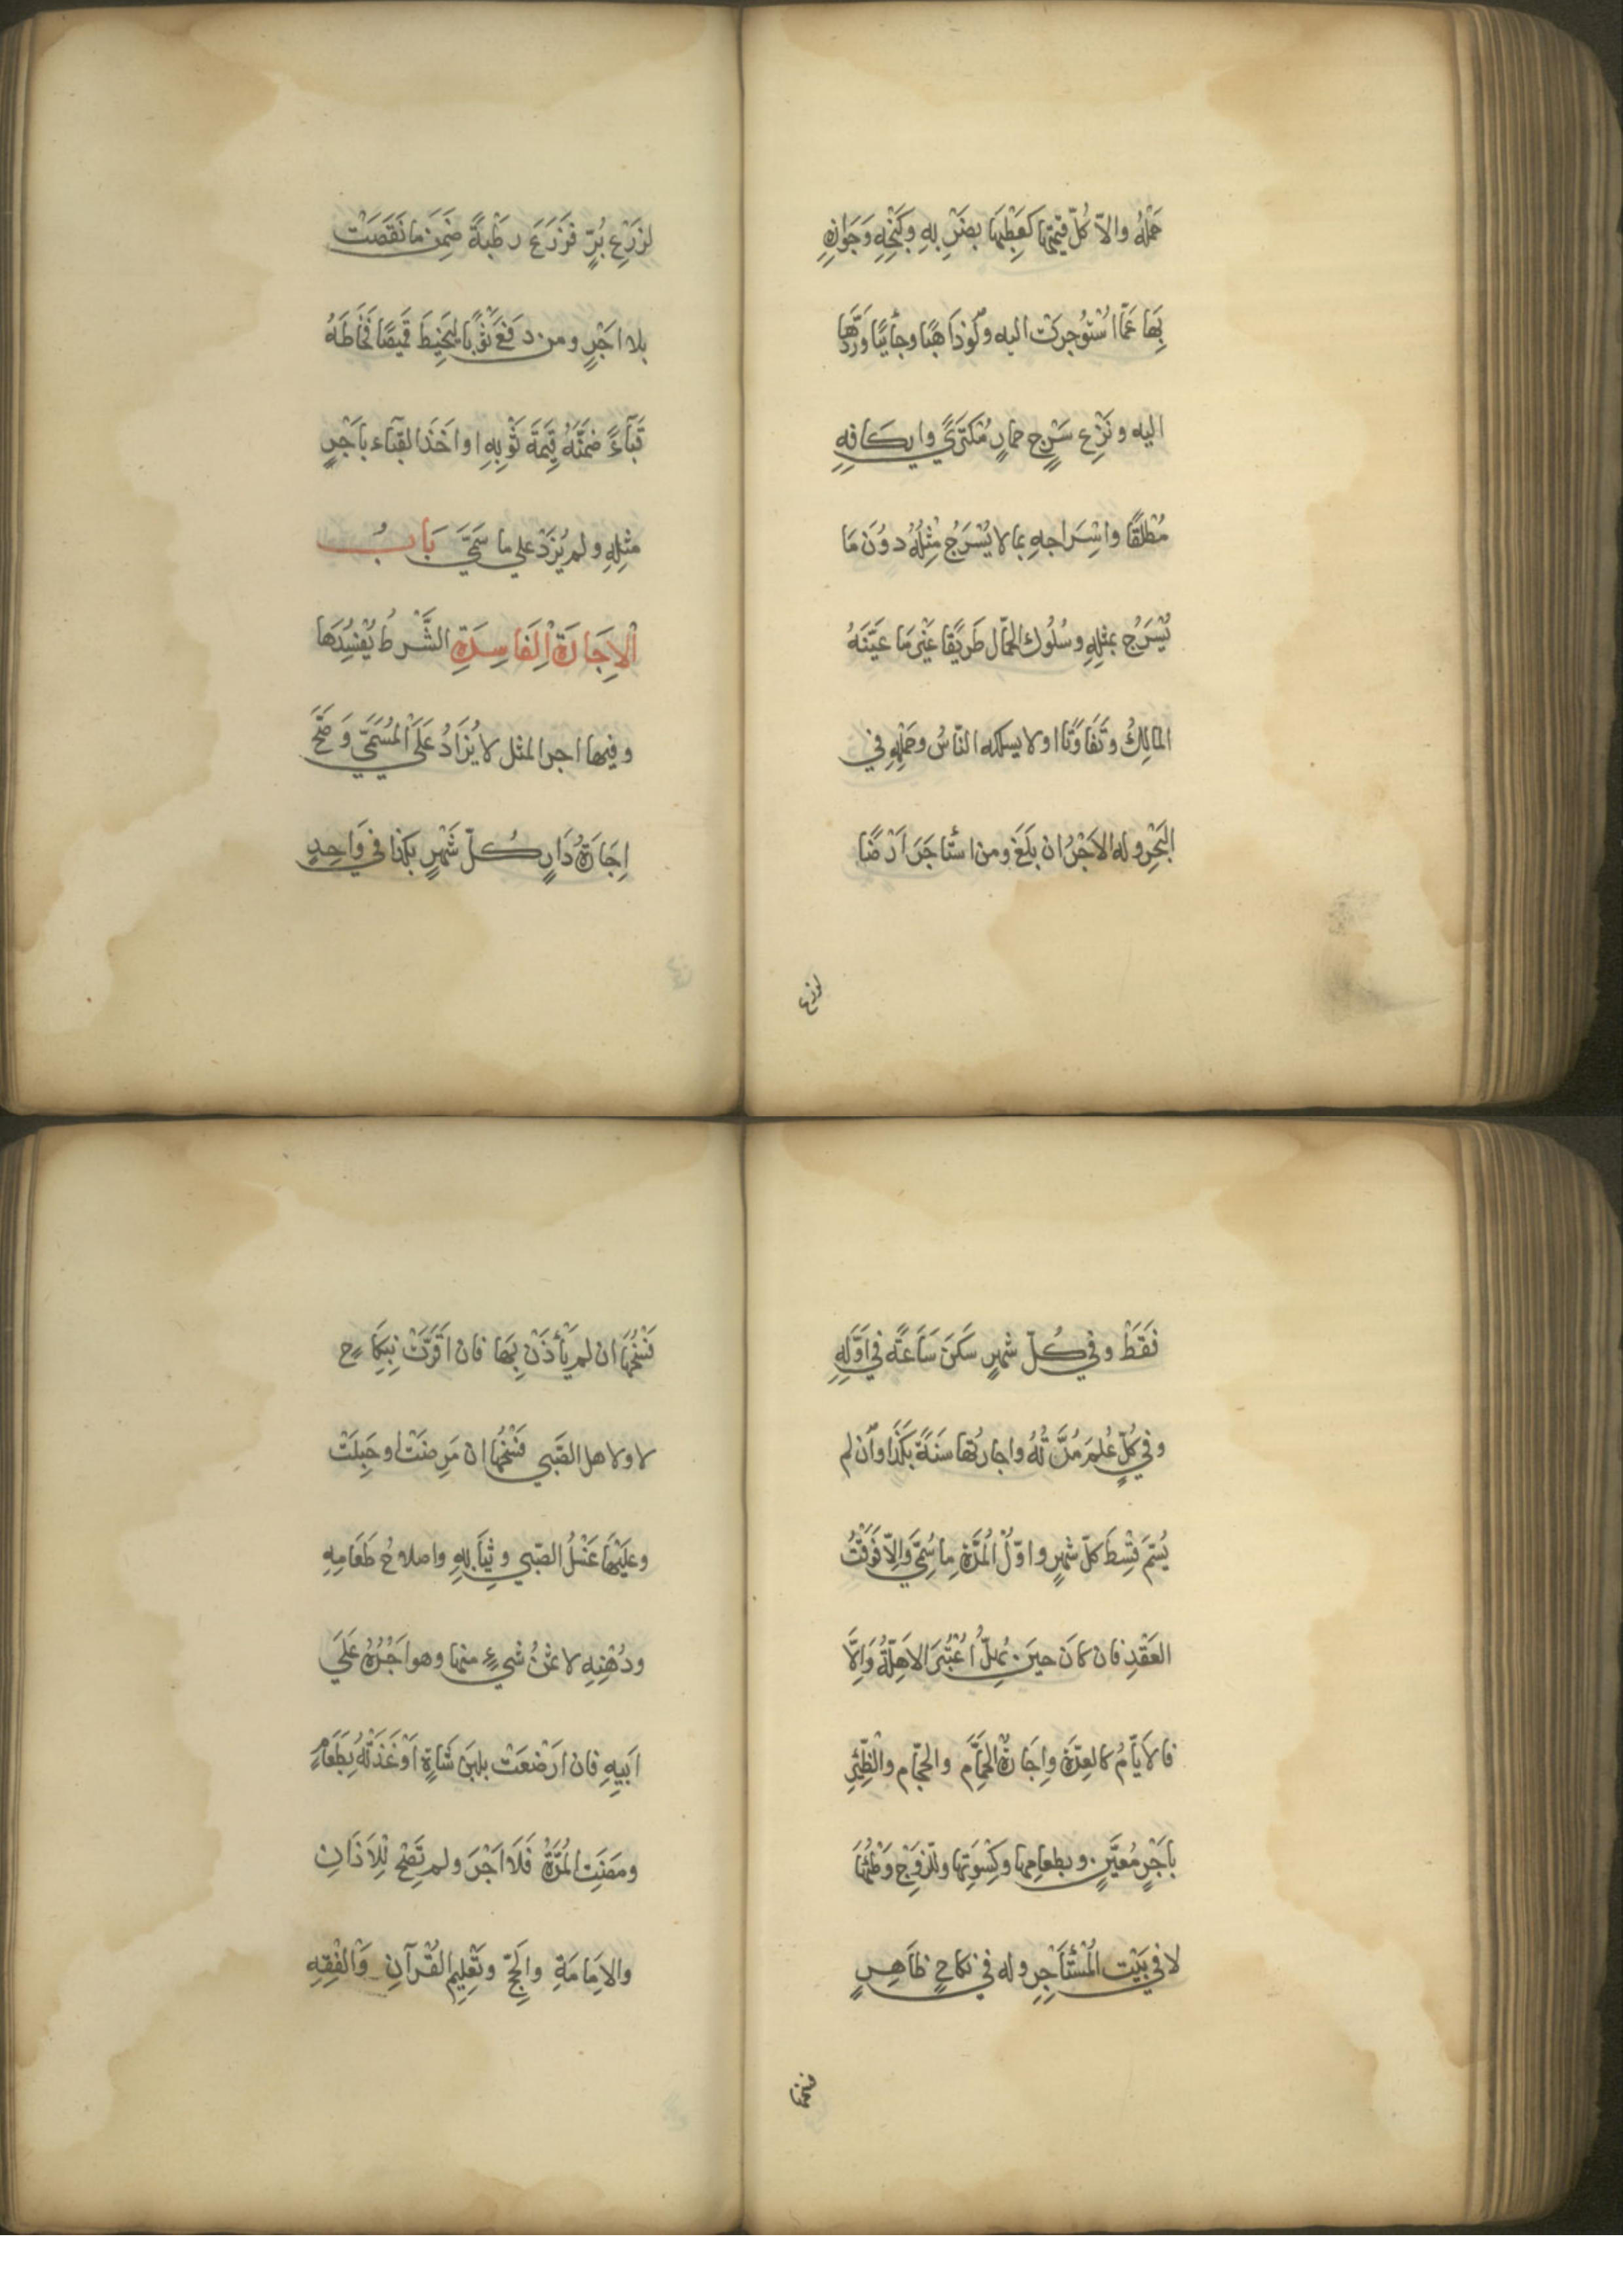 حَمْلُهُ والاّ كُلّ قيمتها كَعَطِبَها بضَرْبِهِ وكَبْحِهِ وَجَوازِهِ
بِهَا عَمّا اسْتُوجِرَتْ اليه ولَوْ ذَاهِبًا وجأئيًا وَرَدّهَا
اليه ونَزْعِ سَرْجِ حمارٍ مُكْتَرًي وايكافِهِ
مُطْلَقًا واسْرَاجِهِ بما لا يُسْرَجُ مِثْلُهُ دوُنَ مَا
يُسْرَجُ بمثلِهِ وسُلُوك الحمّال طَرِيْقًا غَيْرَ مَا عَيَّنَهُ
المَالِكُ وتَفَاوَتَا اولا يسلكه النّاسُ وحَمْلِهِ في
البَحْرِ وله الاَجْرُ ان بَلَغَ ومن استأجَرَ اَرْضًا
لزرع
لزَرْعِ بُرٍّ فَزَرَعَ رطْبَةً ضَمِنَ ما نَقَصَتْ
بلا اَجْرٍ ومن دفَعَ ثَوْبًا ليَخيطَ قَميصًا فَخَاطَهُ
قَبَاءً ضمَّنَهُ قِيمَةَ ثَوْبِهِ او اخَذَ القبَاء باَجْرِ
مثلِهِ ولم يُزَدْ علي ما سَمَّيَ بَابُ
الاِجَارَةِ الفَاسِدَةِ الشَّرطُ يُفْسِدُهَا
وفيها اجر المثل لا يُزَادُ عَلَي المُسَمَّي وَصَحَّ
اِجَارَةُ دَارٍ كُلّ شَهْرٍ بكذا في وَاحِدٍ
فَقَطْ وفي كُلّ شهرٍ سَكَنَ سَاعَةً في اَوَّلِهِ
وفي كُلٍّ عُلِمَ مُدَّتُهُ واجارتُها سَنَةً بكَذَا وَاَن لم
يُسَمّ قِسْطَ كلّ شهرٍ واوّلُ المُدَّةِ مَا سُمِّيَ وَاِلاّ فَوَقْتُ
العَقْدِ فان كَانَ حينَ يُهلّ اُعْتُبِرَ الاَهِلّةُ وَاِلَّا
فالاَيّامُ كالعِدَّةِ واِجَارَةُ الحَمَّام والحجّام والظِّئْرِ
باَجْرٍ مُعَيَّنٍ وبطعامِها وكِسْوَتِها وللزوجِ وَطْئُهَا
لا في بَيْت المُسْتأجِرِ وله في نكاحٍ ظَاهِرٍ
فسْخُها
فَسْخُهَا ان لم يَأْذَنْ بِهَا فان اَقَرَّتْ بِنِكَاحٍ
لا ولاهل الصَّبي فَسْخُها ان مَرِضَتْ او حَبِلَتْ
وعليْهَا غَسْلُ الصّبي وثِيَابِهِ واصلاحُ طَعَامِهِ
ودُهْنِهِ لا ثمنُ شيءٍ منها وهو اَجْرُهُ عَلَي
اَبيِهِ فان اَرْضَعَتْ بلبَن شَاةٍ اَوْ غَذَتْهُ بطَعَامٍ
ومضَتِ المُدّةُ فَلَا اَجْرَ ولم تَصِحّ لِلْاَذَانِ
والاِمَامَةِ والحَجّ وتَعْلِيمِ القُرْآنِ وَالفِقْهِ